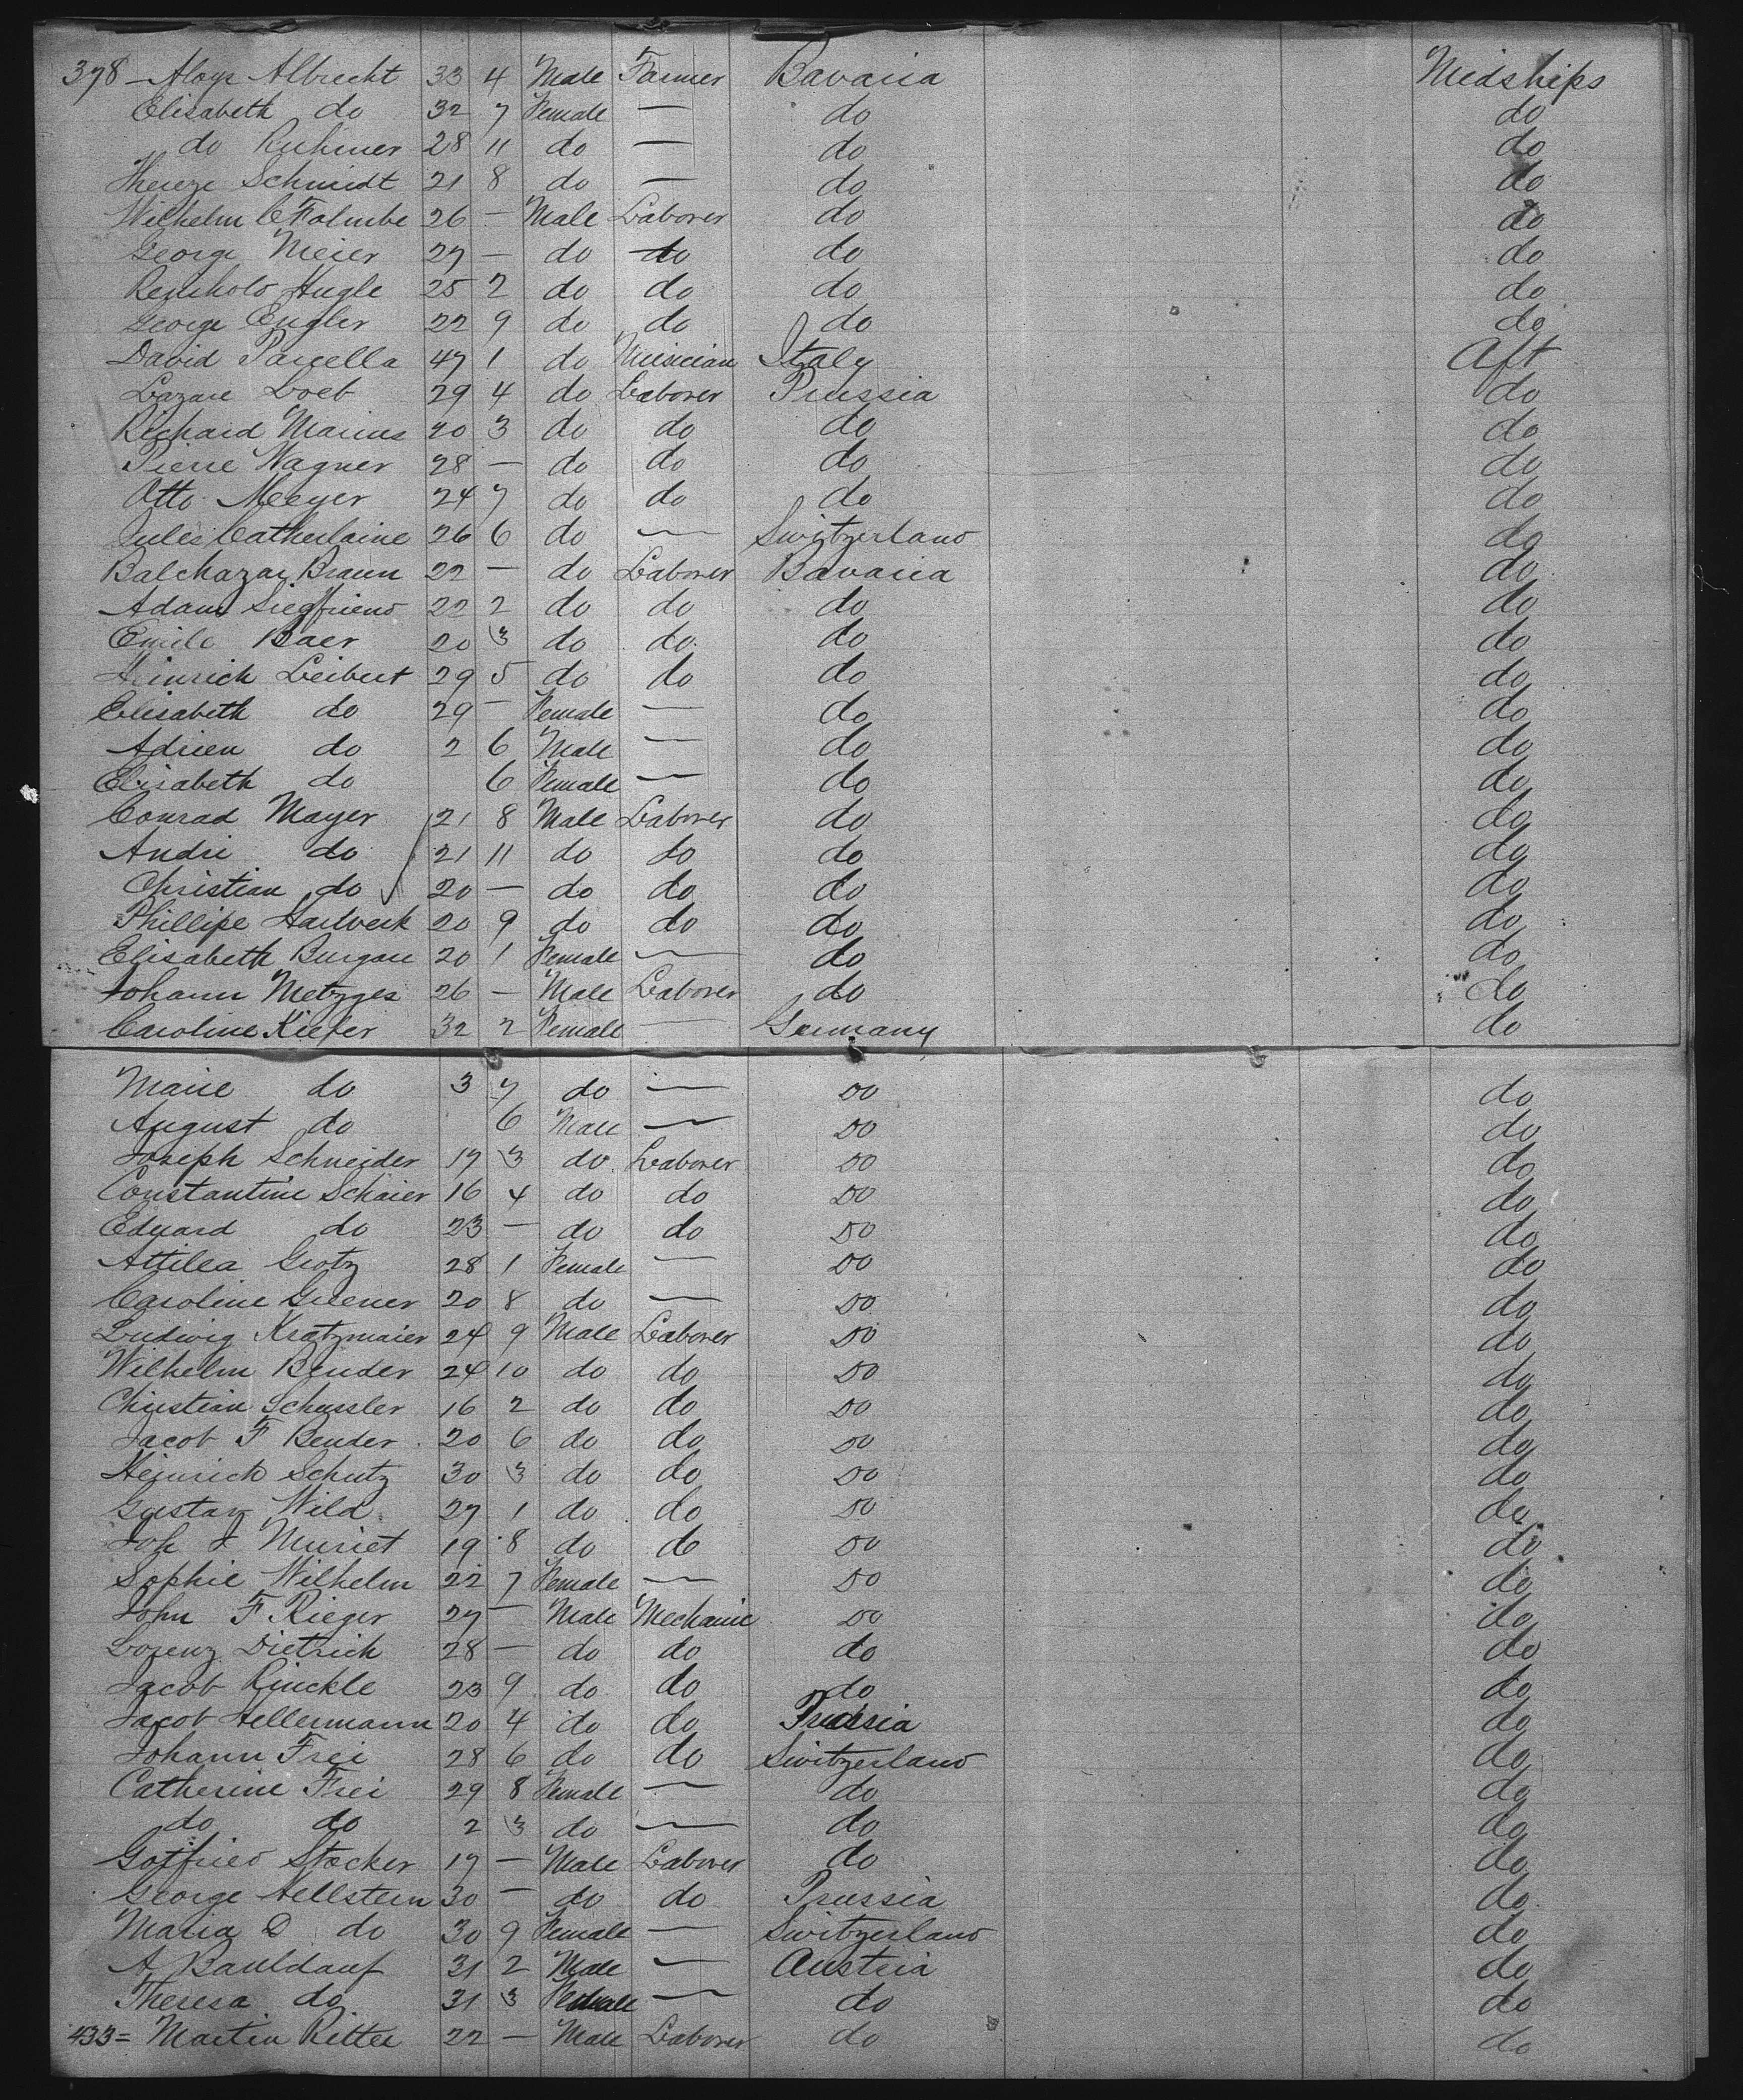 378 - Aloys Albrecht 33 4 Male Farmer Bavaria Midships
Elisabeth do 32 7 Female — do do
do 28 11 do — do do
Schmidt 21 8 do — do do
Wilhelm 26 — Male Laborer do do
George Meier 27 — do do do do
Reinhold Hugle 25 2 do do do do
George Engler 22 9 do do do do
David 47 1 do Musician Italy Aft
Lazare Loeb 29 4 do Laborer Prussia do
Richard Marius 20 3 do do do do
Pierre Wagner 28 — do do do do
Otto Meeyer 24 7 do do do do
Jules 26 6 do — Switzerland do
Balthazar Braun 22 — do Laborer Bavaria do
Adam Siegfried 22 2 do do do do
Emile Baer 20 3 do do do do
Heinrich Leibert 29 5 do do do do
Elisabeth do 29 — Female — do do
Adrien do 2 6 Male — do do
Elisabeth do 6 Female — do do
Conrad Mayer 21 8 Male Laborer do do
Andre do 21 11 do do do do
Christian do 20 — do do do do
Phillipe 20 9 do do do do
Elisabeth Burgau 20 1 Female — do do
Johann Metzger 26 — Male Laborer do do
Caroline Kiefer 32 2 Female — Germany do
Marie do 3 7 do — do do
August do 6 Male — do do
Joseph Schneider 17 3 do Laborer do do
Constantine Schaier 16 4 do do do do
Eduard do 23 — do do do do
Attilea Grotz 28 1 Female — do do
Caroline 20 8 do — do do
Ludwig Kratzmaier 24 9 Male Laborer do do
Wilhelm Bender 24 10 do do do do
Christian Schussler 16 2 do do do do
Jacob F Bender 20 6 do do do do
Heinrich Schutz 30 3 do do do do
Gustav Wild 27 1 do do do do
19 8 do do do do
Sophie Wilhelm 22 7 Female — do do
John F Rieger 27 — Male Mechanic do do
Lorenz Dietrich 28 — do do do do
Jacob Rinckle 23 9 do do do do
Jacob Hellermann 20 4 do do Prussia do
Johann Frei 28 6 do do Switzerland do
Catherine Frei 29 8 Female — do do
do do 2 3 do — do do
Gotfried Stocker 17 — Male Laborer do do
George Hellstern 30 — do do Prussia do
Maria D do 30 9 Female — Switzerland do
A Bauldauf 31 2 Male — Austria do
Theresa do 31 3 Female — do do
433 = Martin Ritter 22 — Male Laborer do do